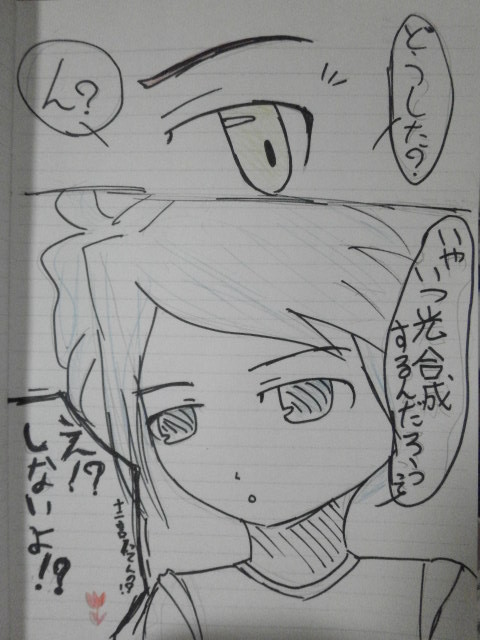 どうした?
ん?
いや
いつ光合成
するんだろうって
え!?
しないよ!?